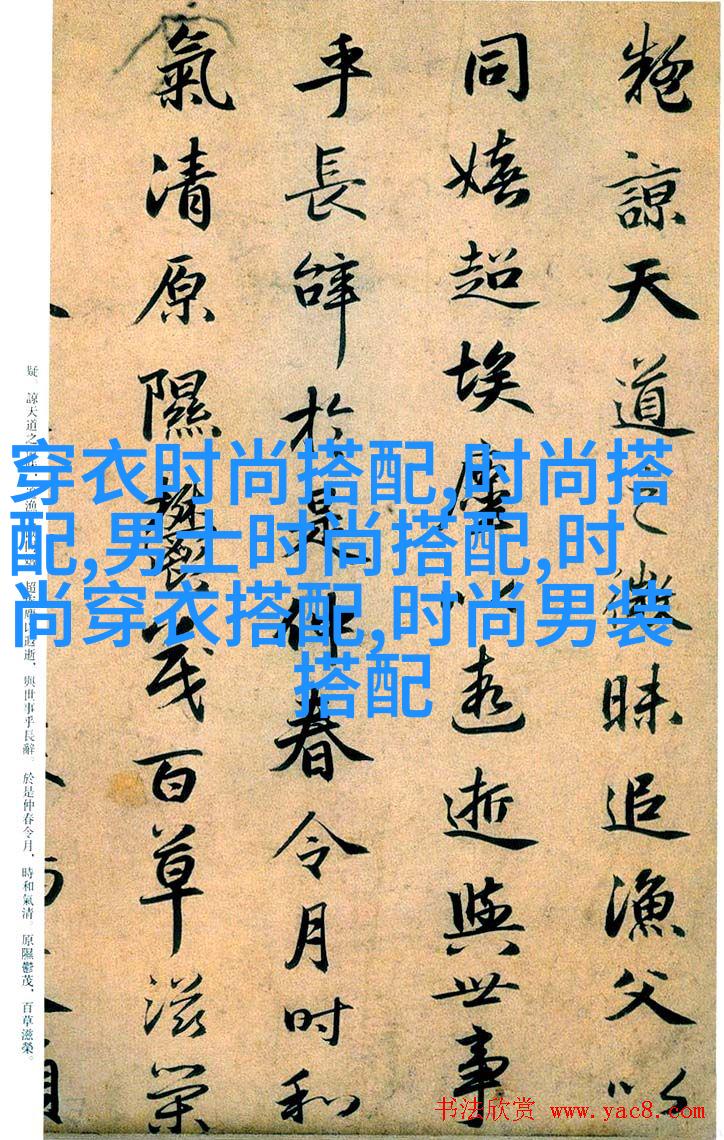 疑諒天道之微昧追漁父以
同嬉超埃塵以遐逝與世事
乎長辭於是仲春令月時和
氣清原隰鬱茂百草滋榮
疑。諒天道之 漁 超埃塵以遐逝，與世事乎長辭。於是仲春令月，時和氣清。原隰鬱茂，百草滋榮。
穿衣时尚搭配,时尚搭
配,男士时尚搭配,时
尚穿衣搭配,时尚男装
搭配
书法欣赏 www.yac8.com